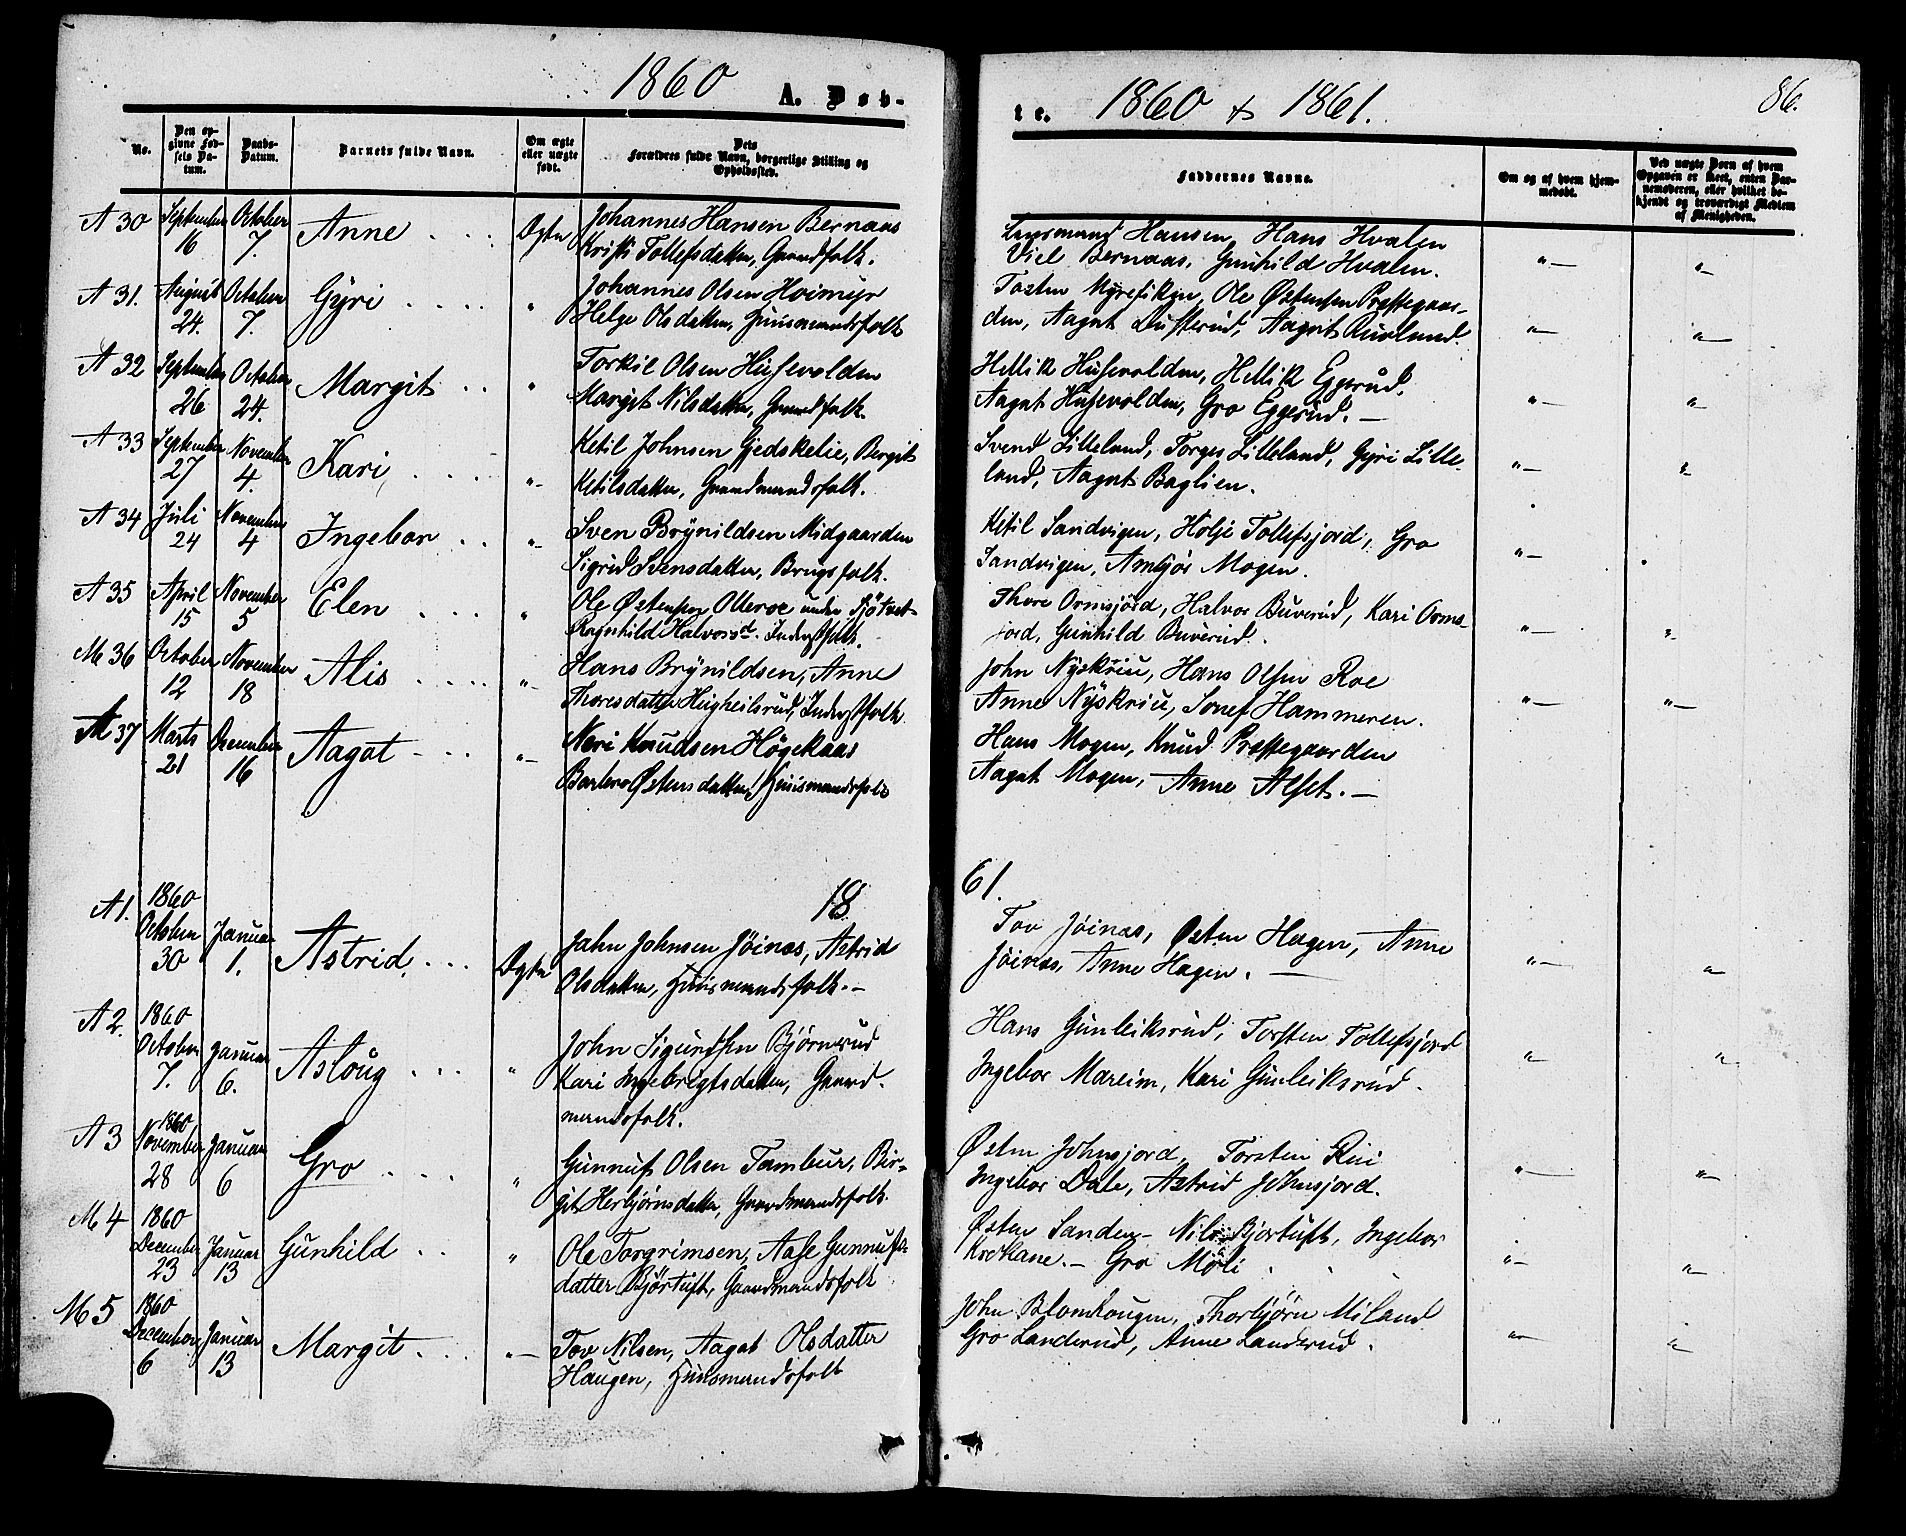 1860
A. Døb-
No.
Den op-
givne Fød-
sels Da-
tum.
Daabs-
Datum.
Barnets fulde Navn.
Om ægte
eller uægte
født.
Dets
Forældres fulde Navn, borgerlige Stilling og
Opholdssted.
A 30
September
16
October
7.
Anne
Ægte
Johannes Hansen Bernaas
Kristi Tollefsdatter, Gaardfolk.
A 31.
August
24.
October
7.
Gyri
"
Johannes Olsen Hoimyr
Helge Olsdatter, Huusmandsfolk
A 32
September
26
October
24.
Margit
"
Torkil Olsen Husevolden
Margit Nilsdatter, Gaardfolk.
A 33
September
27
November
4.
Kari
"-
Ketil Johnsen Gjedskelie, Bergit
Ketilsdatter, Gaardmandsfolk.
A 34
Juli
24
November
4
Ingebor
"-
Sven Brynildsen Midgaarden
Sigrid Svensdatter, Brugsfolk.
A 35
April
15
November
5
Elen
"
Ole Østensen Olleroe under
Ragnhild Halvorsd. Inderstfolk.
M 36
October
12
November
18
Alis
"-
Hans Brynildsen, Anne
Thoresdatter Inderstfolk
A 37
Marts
21
December
16
Aagat
"-
Neri Knudsen Høgekaas
Barbro Østensdatter, Huusmandsfolk
18
A 1.
1860
October
30
Januar
1.
Astrid
Ægte
John Johnsen Jöinas, Astrid
Olsdatter, Huusmandsfolk.-
A 2.
1860
October
7.
Januar
6.
Asloug
"
John Sigurdsen Bjørnerud
Kari Ingebregtsdatter, Gaard-
mandsfolk.
A 3
1860
November
28
Januar
6
Gro
"
Gunnuf Olsen Tambur, Bir-
git Herbjørnsdatter, Gaardmandsfolk
M 4
1860
December
23
Januar
13
Gunhild
"
Ole Torgrimsen, Aase Gunnufs-
datter Bjørtuft, Gaardmandsfolk
M 5
1860
December
6
Januar
13
Margit
"-
Tov Nilsen, Aagat Olsdatter
Haugen, Huusmandsfolk
te.
1860 & 1861.
86.
Faddernes Navne.
Om og af hvem hjem-
medøbt.
Ved uægte Børn af hvem
Opgaven er skeet, enten Bar-
nemoderen, eller hvilket be-
kjendt og troværdigt Medlem
af Menigheden.
Lensmand Hansen, Hans Hvalen
Bernaas, Gunhild Hvalen.
Tosten Ole Østensen Præstegaar-
den, Aagat Lufterud, Aagat
Hellik Husevolden, Hellik Eggerud,
Aagat Husevolden, Gro Eggerud.-
Svend Lilleland, Torger Lilleland, Gyri Lille-
land, Aagat Baglien.
Ketil Sandvigen, Holje Tollefsjord, Gro
Sandvigen, Mogen.
Thore Ormsjord, Halvor Buverud, Kari Orms-
jord, Gunhild Buverud.
John Nyskriu, Hans Olsen Roe
Anne Nyskriu, Hammeren.
Hans Mogen, Knud Præstegaarden
Aagat Mogen, Anne Alset.-
61.
Tov Jöinas, Østen Hagen, Anne
Jöinas, Anne Hagen.-
Hans Gunleiksrud, Torsten Tollefsjord
Ingebor Mareim, Kari Gunleiksrud.
Østen Johnsjord, Torsten Rui
Ingebor Dale, Astrid Johnsjord.
Østen Sanden- Nils Bjortuft, Ingebor
Krokane.- Gro Möli
John Blomhougen, Thorbjörn Miland
Gro Landerud, Anne Landerud.